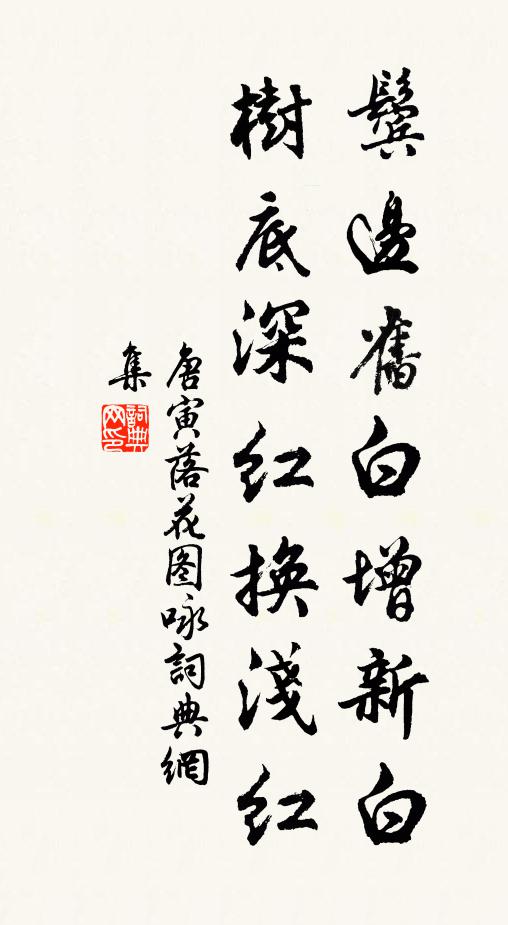 鬢邊舊白增新白
樹底深紅換淺紅
唐寅落花图咏詞典網
集
詞典
网印